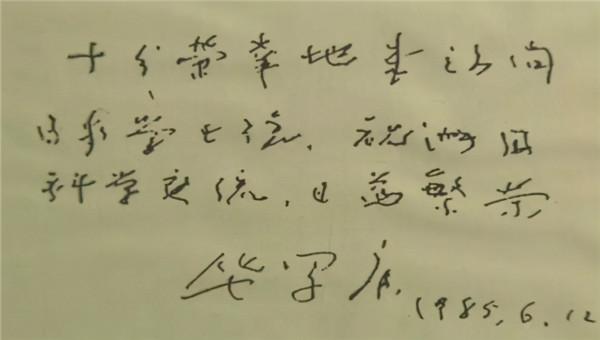 十分荣幸地来访问
日本学士院，祝两国
科学交流，日益繁荣
华罗庚 1985.6.12